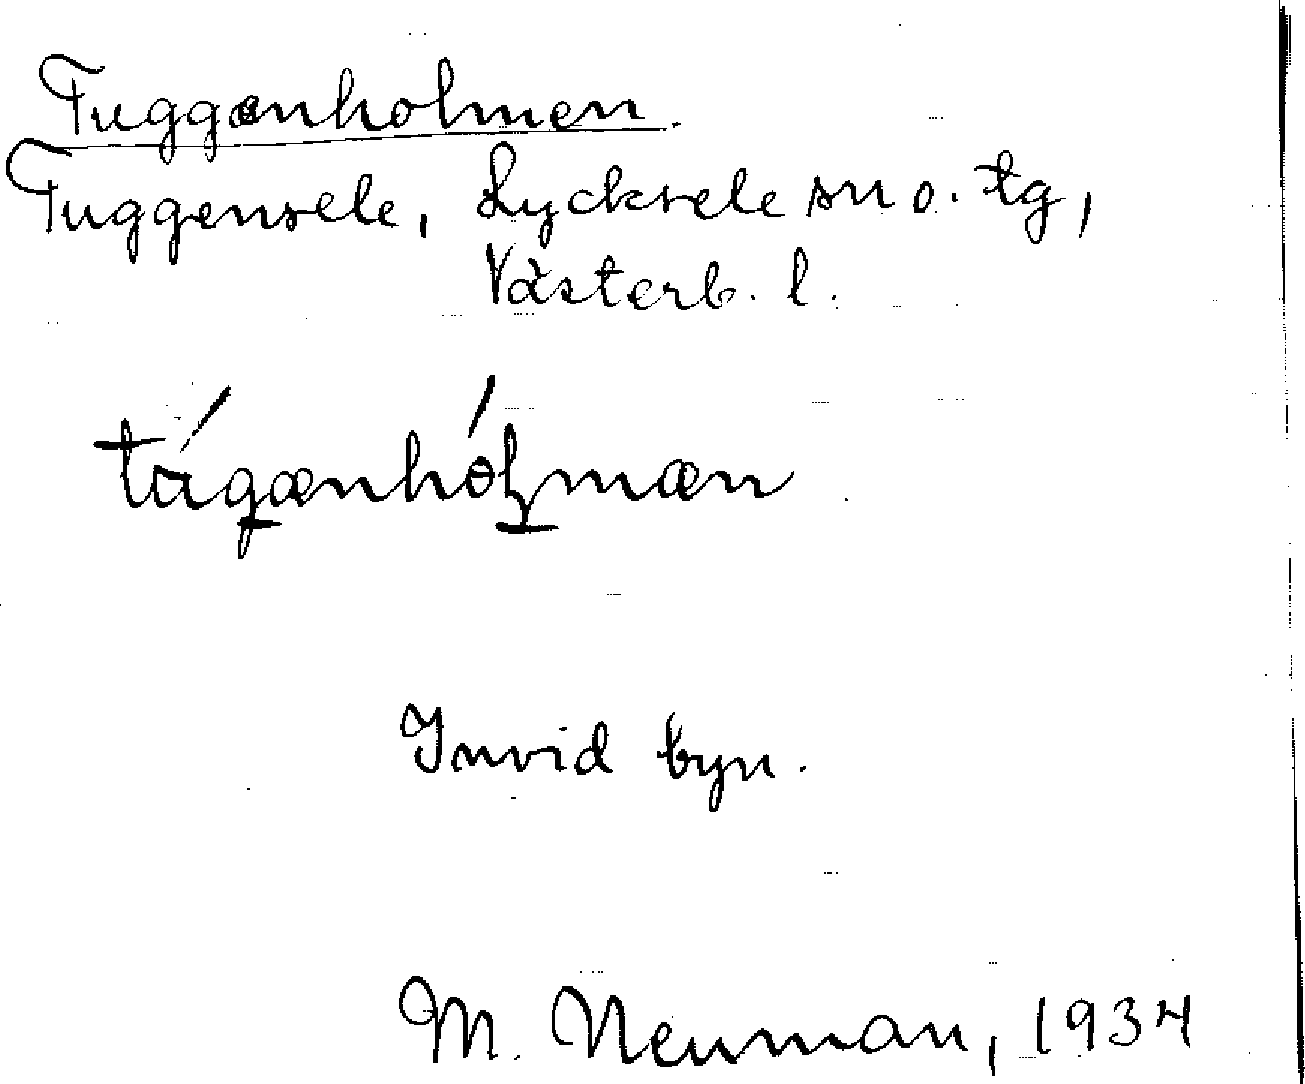 Tuggenholmen.
Tuggensele, Lycksele sn o. tg,
Västerb. l.
Invid byn.
M. Neuman, 1934